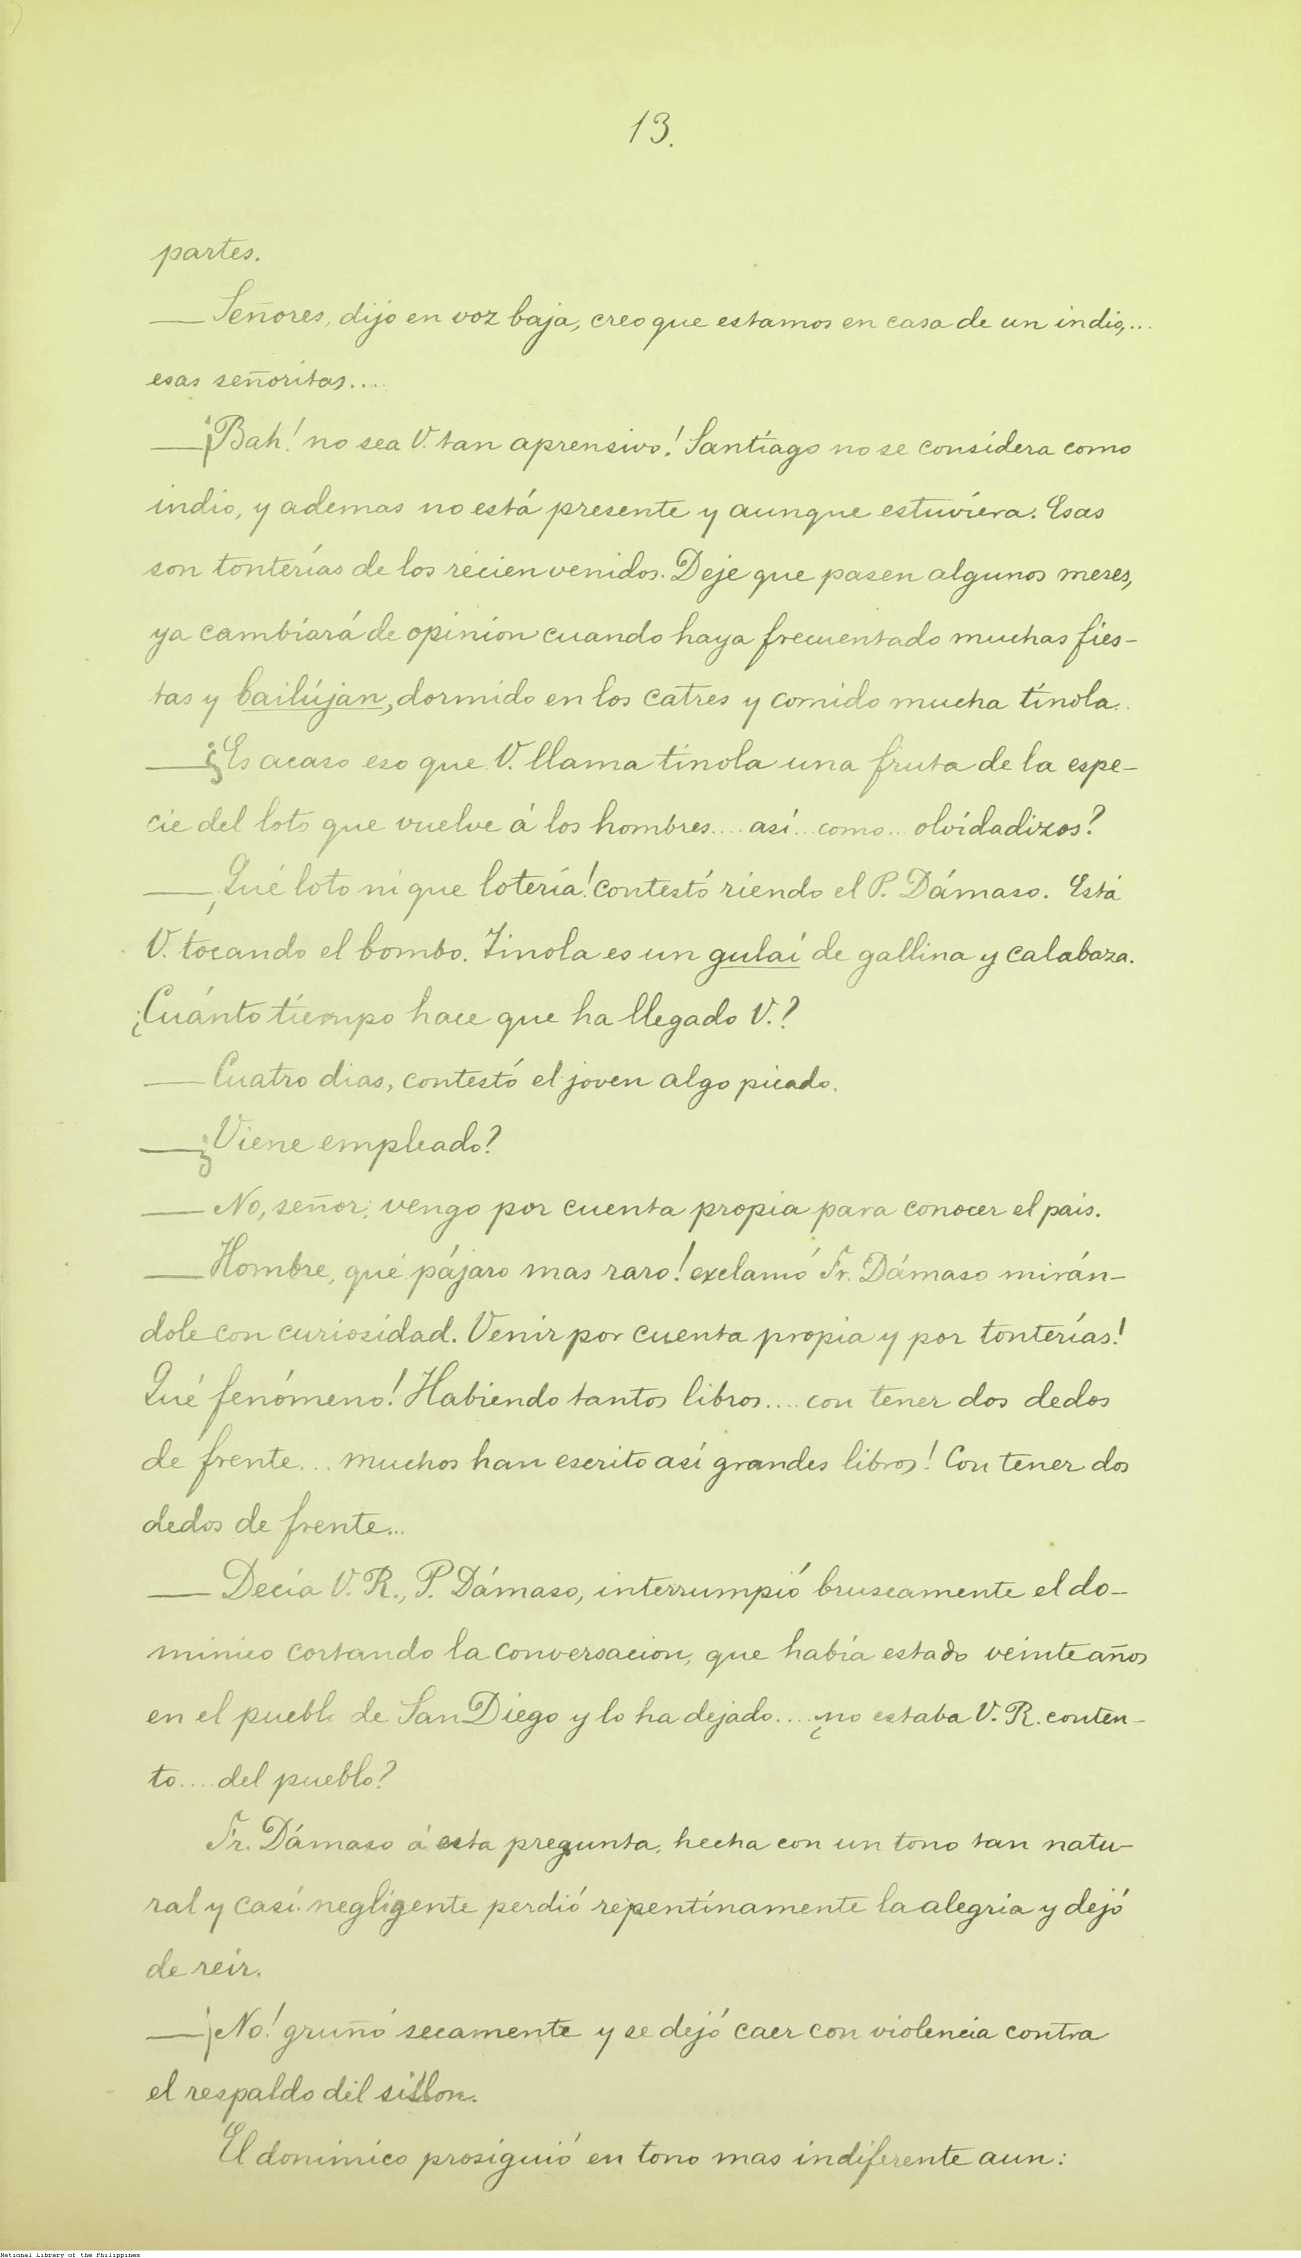 13.
partes.
— Señores, dijo en voz baja, creo que estamos en casa de un indio,...
esas señoritas....
— ¡Bah! no sea V. tan aprensivo! Santiago no se considera como
indio, y ademas no está presente y aunque estuviera! Esas
son tonterías de los recien venidos. Deje que pasen algunos meses,
ya cambiará de opinion cuando haya frecuentado muchas fies-
tas y bailújan, dormido en los catres y comido mucha tinola..
— ¿Es acaso eso que V. llama tinola una fruta de la espe-
cie del loto que vuelve á los hombres.... así... como.. olvidadizos?
— ¡Qué loto ni que lotería! contestó riendo el P. Dámaso. Está
V. tocando el bombo. Tinola es un gulaí de gallina y calabaza.
¿Cuánto tiempo hace que ha llegado V.?
— Cuatro dias, contestó el joven algo picado.
— ¿Viene empleado?
— No, señor; vengo por cuenta propia para conocer el país.
— Hombre, qué pájaro mas raro! exclamó Fr. Dámaso mirán-
dole con curiosidad. Venir por cuenta propia y por tonterías!
Qué fenómeno! Habiendo tantos libros.... con tener dos dedos
de frente... muchos han escrito así grandes libros! Con tener dos
dedos de frente...
— Decía V. R., P. Dámaso, interrumpió bruscamente el do-
minico cortando la conversacion, que había estado veinte años
en el pueblo de San Diego y lo ha dejado.... ¿no estaba V. R. conten-
to.... del pueblo?
Fr. Dámaso á esta pregunta, hecha con un tono tan natu-
ral y casi negligente perdió repentinamente la alegría y dejó
de reir.
— ¡No! gruñó secamente y se dejó caer con violencia contra
el respaldo del sillon.
El dominico prosiguió en tono mas indiferente aun:
National Library of the Philippines